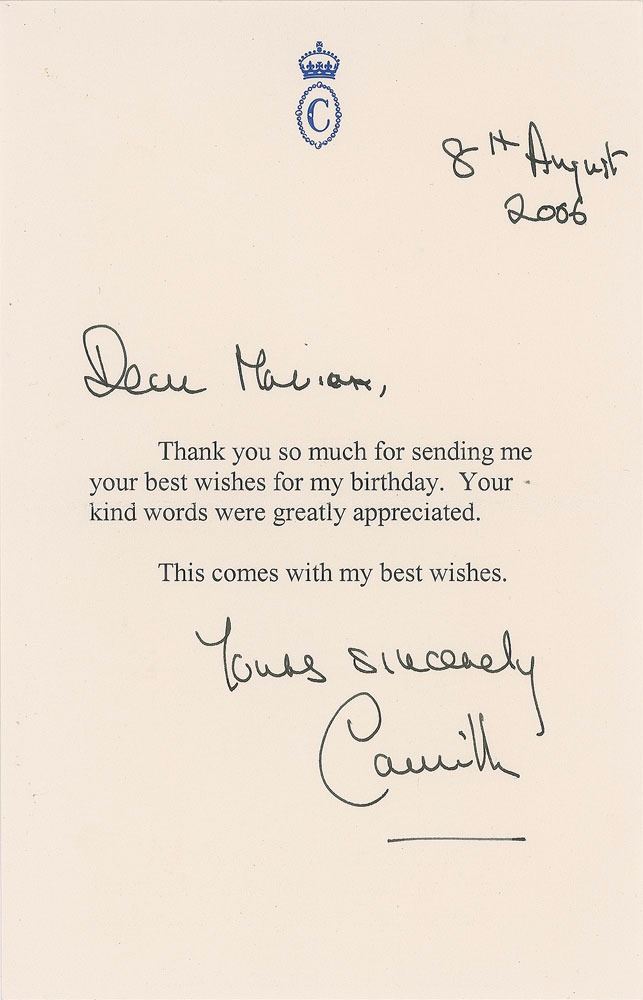 C
8TH August
2006
Dear Marian,
Thank you so much for sending me
your best wishes for my birthday. Your
kind words were greatly appreciated.
This comes with my best wishes.
Yours sincerely
Camilla